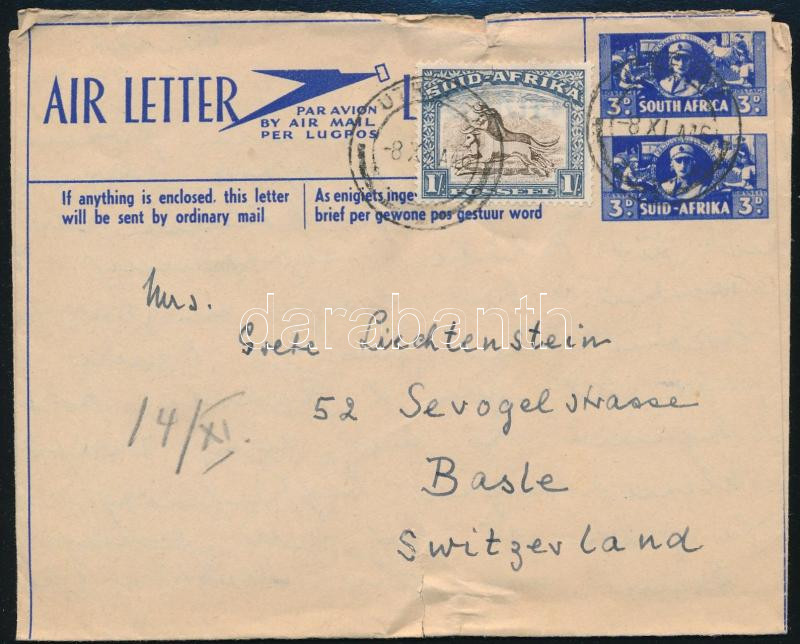 AIR LETTER
PAR AVION
BY AIR MAIL
PER LUGPOS
If anything is enclosed, this letter
will be sent by ordinary mail
As enigiets inge
brief per gewone pos gestuur word
SUID-AFRIKA
1/- POSSEEL 1/-
3D SOUTH AFRICA 3D
3D SUID-AFRIKA 3D
-8 XI
-8 XI
Mrs.
Grete Liechtenstein
52 Sevogelstrasse
Basle
Switzerland
14/XI.
darabanth